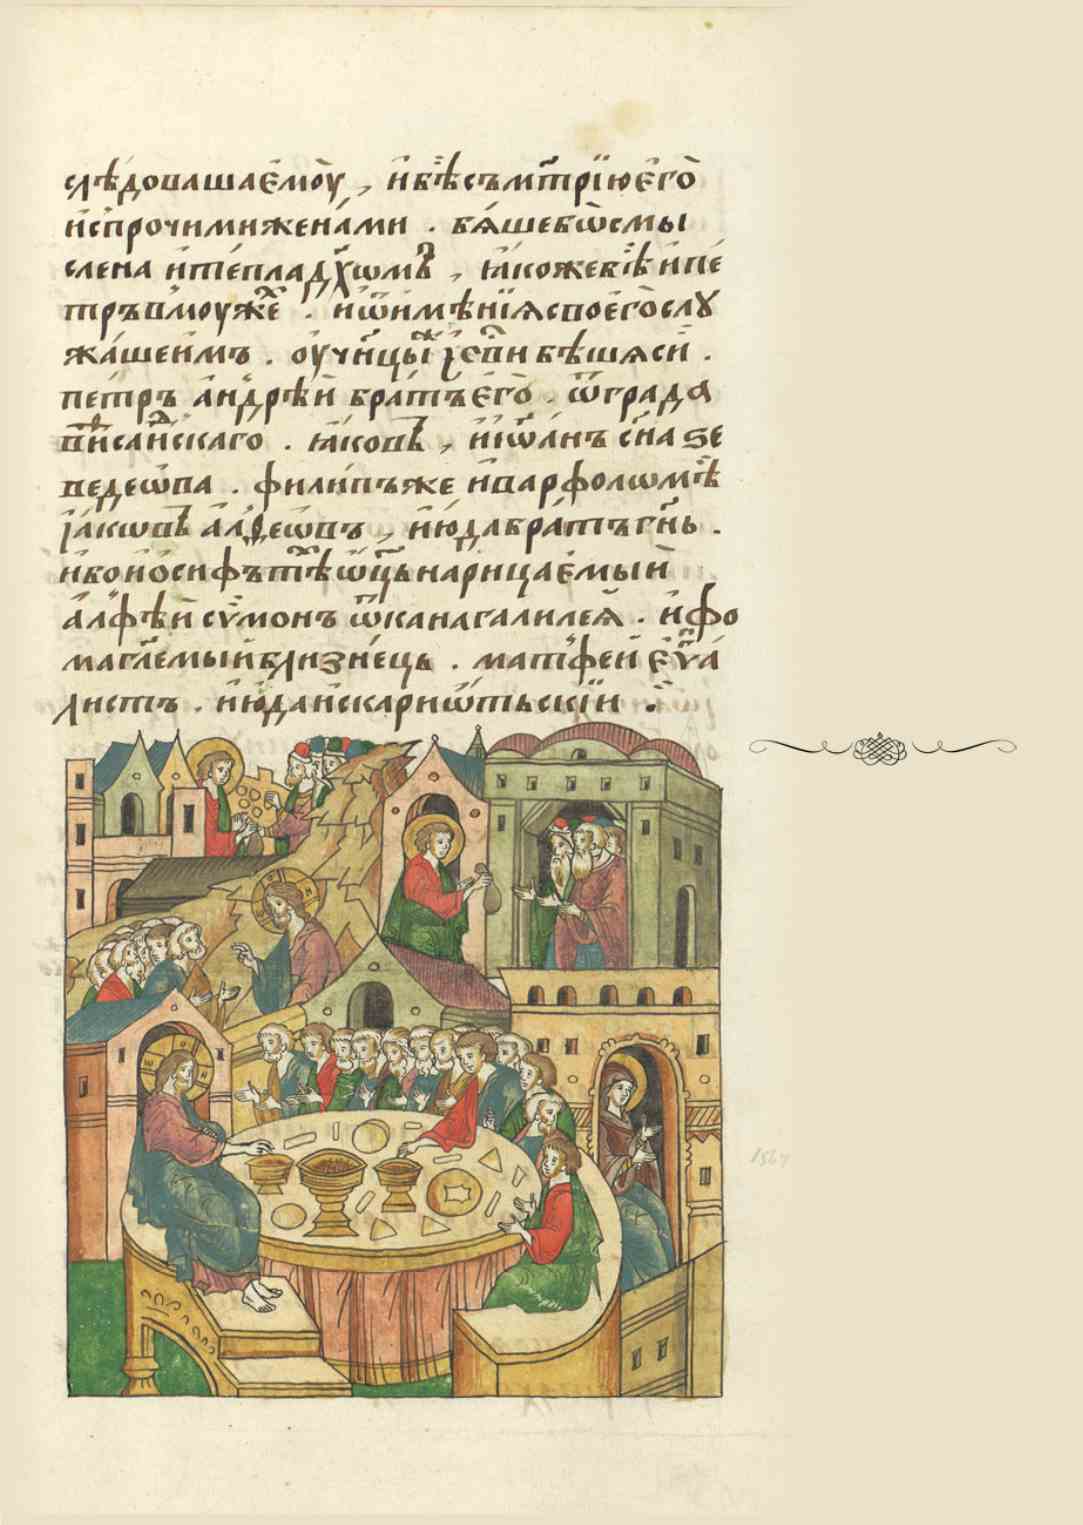 слѣдовашаемоу , ивѣсъмт҃рїюего
испрочимиженами . бяшебѡсмы
слена итепладх҃ѡмъ , ꙗкожевѣ ипе
тръвмоуже . иѿимѣнїясвоегослꙋ
жашеимъ . оучн҃цы бѣшясїи .
петръ андрѣи братъего . ѿграда
виѳсаискаго . ꙗковъ , иїѡанъ сн҃а ѕе
ведеѡва . филипъже иварфоломѣ
їакѡвъ алфеѡвъ , июдабратъгн҃ь .
ѡц҃ънарицаемыи
алфѣи сѵмонъ ѿканагалилея . ифо
магл҃емыиблизнець . матфеи еѵ҃а
листъ . июдаискариѡтьскїи .
1567